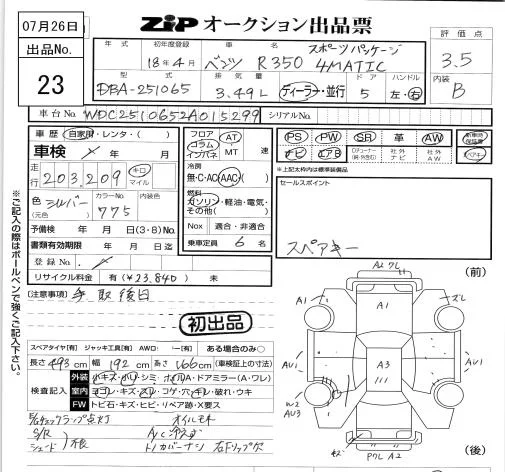 07月26日
出品No.
23
ZIP オークション出品票
年式
初年度登録
18年4月
車名
ベンツ R350 スポーツパッケージ
4MATIC
評価点
3.5
内装
B
型式
DBA-251065
排気量
3.49L
ディーラー・並行
ドア
5
ハンドル
左・右
車台No.
WDC2510652A015299
シリアルNo.
車歴 自家用・レンタ・( )
車検 年 月
走行
203,209
キロ
マイル
色
(元色)
シルバー
カラーNo.
775
内装色
予備検 年 月 日(3・8)No.
書類有効期限 年 月 日迄
登録No.
リサイクル料金 有(¥23,840) 未
フロア
コラム
インパネ
AT
MT
速
冷房
無・C・AC・AAC
燃料
ガソリン・軽油・電気・
その他( )
Nox 適合・非適合
乗車定員 6 名
PS
PW
SR
革
AW
ナビ
エアB
社外
ナビ
社外
AW
新車時
保証書
スペアキー
※上記太枠内は標準装備品
セールスポイント
スペアキー
注意事項
手取後日
初出品
スペアタイヤ[有] ジャッキ工具[有] AWD: ー[有] ある場合のみ○
長さ 493cm 幅 192cm 高さ 166cm (車検証上の寸法)
検査記入
外装 キズ・凹・シミ・ホール A・ドアミラー(A・ワレ)
室内 ヨゴレ・キズ・スレ・コゲ・穴・キレ・破れ・ウキ
FW トビ石・キズ・ヒビ・リペア跡・X要ス
点灯
オイルモレ
S/R
シェード
不良
A/C冷えず
※ご記入の際はボールペンで強くご記入下さい。
(前)
A2 ワレ
A1
A1
ズレ
AU1
A3
AU1
W2
AU3
キズ
Pワレ A2
(後)